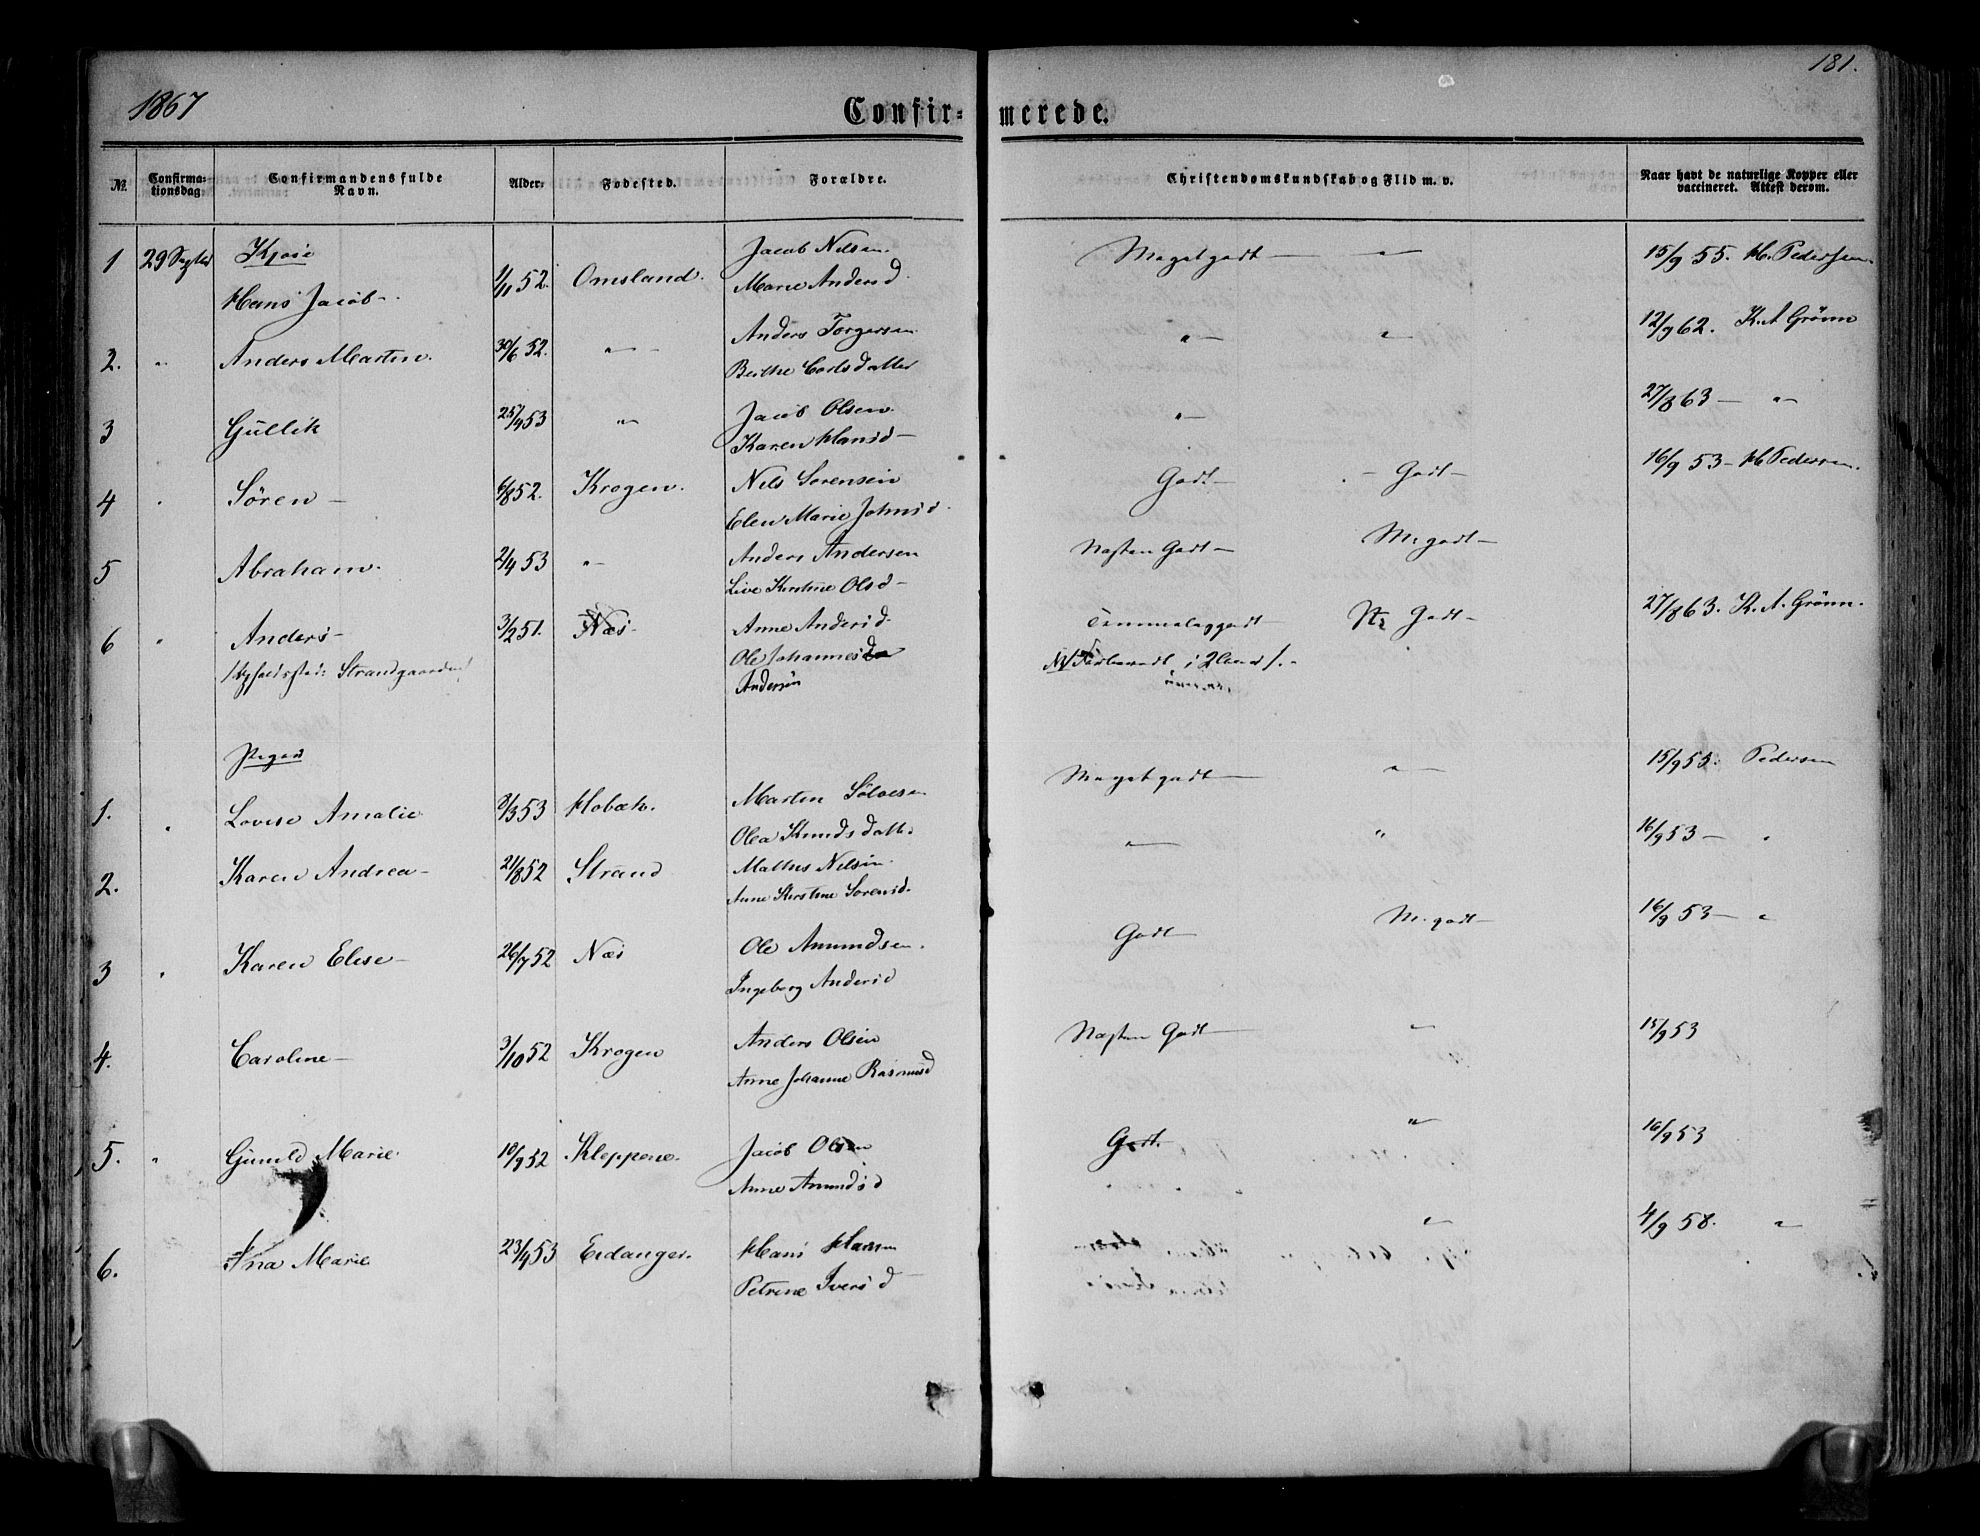 181.
1867 Confir- merede.
№. Confirmationsdag. Confirmandens fulde Navn. Alder. Fødested. Forældre. Christendomskundskab og Flid m. v. Naar havt de naturlige Kopper eller vaccineret. Attest derom.
1 29 Septbr Jacob Nilsen Meget godt — 〃 — 15/9 55. H. Pedersen.
Hans Jacob. 1/11 52. Omsland. Marie Andersd.
2. 〃 Anders Martin. 30/6 52. — 〃 — Anders Torgersen 〃 — 〃 — 12/9 62. K. A. Grönn
Berthe Carlsdatter
3 Gullik 25/4 53 〃 Jacob Olsen. 〃 — 27/8 63 — 〃 —
Karen Hansd —
4 〃 Sören — 6/8 52. Krogen. Nils Sorensen Godt — Godt — 16/9 53 — H. Pedersen.
Elen Marie Johnsd.
5 Abraham. 2/4 53 〃 Anders Andersen Næsten Godt — M. godt —
Live Kirstine Olsd —
6 〃 Anders — 3/2 51. Næs — Anne Andersd. Temmelig godt — Godt — 27/8 63. K. A. Grönn.
Opholdssted: Strandgaarden Ole Johannes
Andersen
Piger
1. 〃 Lovise Amalie 8/3 53 Holbæk. Marten Sölvesen Meget godt — 〃 — 15/9 53. Pedersen
Olea Knudsdatter
2. Karen Andrea — 21/8 52 Strand Mathis Nilsen. — 〃 — 〃 16/9 53 — 〃
Anne Kirstine Sorensd.
3 〃 Karen Elise — 26/7 52 Næs Ole Amundsen. Godt — M. godt — 16/9 53 — 〃
Ingeborg Andersd
4. Caroline — 3/10 52 Krogen Anders Olsen Næsten Godt — 〃 15/9 53
Anne Johanne Rasmusd
5. 〃 Gunild Marie. 18/9 52 Kleppene. Jacob Olsen Godt. 〃 16/9 53
Anne Amundsd
6. Ina Marie 23/4 53 Eidanger. Hans Hansen 〃 4/9 58. 〃
Petrine Iversd —